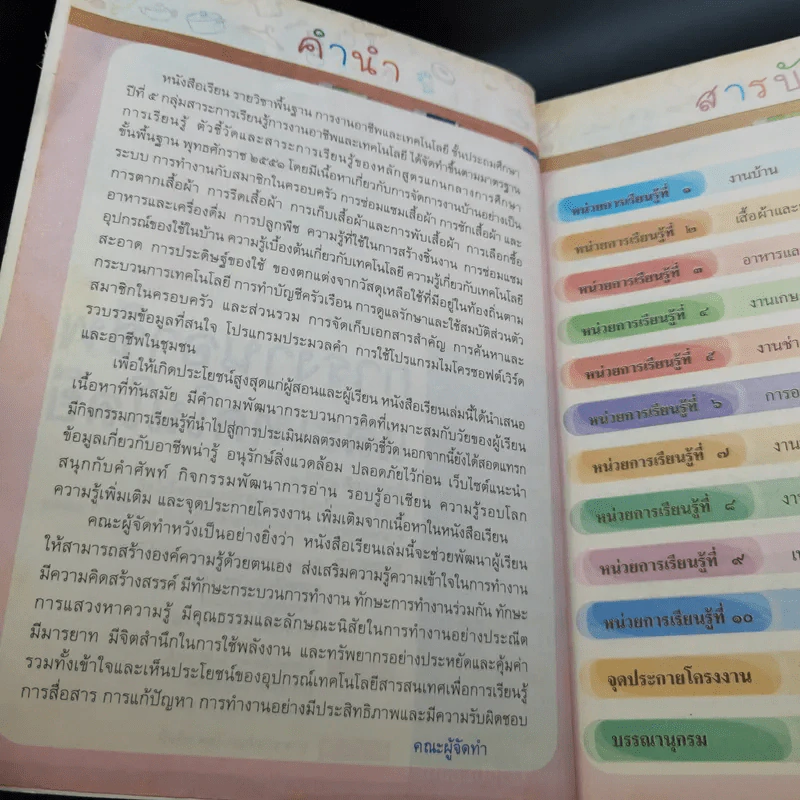 คำนำ
หนังสือเรียน รายวิชาพื้นฐาน การงานอาชีพและเทคโนโลยี ชั้นประถมศึกษา
ปีที่ ๕ กลุ่มสาระการเรียนรู้การงานอาชีพและเทคโนโลยี ได้จัดทำขึ้นตามมาตรฐาน
การเรียนรู้ ตัวชี้วัดและสาระการเรียนรู้ของหลักสูตรแกนกลางการศึกษา
ขั้นพื้นฐาน พุทธศักราช ๒๕๕๑ โดยมีเนื้อหาเกี่ยวกับการจัดการงานบ้านอย่างเป็น
ระบบ การทำงานกับสมาชิกในครอบครัว การซ่อมแซมเสื้อผ้า การซักเสื้อผ้า และ
การตากเสื้อผ้า การรีดเสื้อผ้า การเก็บเสื้อผ้าและการพับเสื้อผ้า การเลือกซื้อ
อาหารและเครื่องดื่ม การปลูกพืช ความรู้ที่ใช้ในการสร้างชิ้นงาน การซ่อมแซม
อุปกรณ์ของใช้ในบ้าน ความรู้เบื้องต้นเกี่ยวกับเทคโนโลยี ความรู้เกี่ยวกับเทคโนโลยี
สะอาด การประดิษฐ์ของใช้ ของตกแต่งจากวัสดุเหลือใช้ที่มีอยู่ในท้องถิ่นตาม
กระบวนการเทคโนโลยี การทำบัญชีครัวเรือน การดูแลรักษาและใช้สมบัติส่วนตัว
สมาชิกในครอบครัว และส่วนรวม การจัดเก็บเอกสารสำคัญ การค้นหาและ
รวบรวมข้อมูลที่สนใจ โปรแกรมประมวลคำ การใช้โปรแกรมไมโครซอฟต์เวิร์ด
และอาชีพในชุมชน
เพื่อให้เกิดประโยชน์สูงสุดแก่ผู้สอนและผู้เรียน หนังสือเรียนเล่มนี้ได้นำเสนอ
เนื้อหาที่ทันสมัย มีคำถามพัฒนากระบวนการคิดที่เหมาะสมกับวัยของผู้เรียน
มีกิจกรรมการเรียนรู้ที่นำไปสู่การประเมินผลตรงตามตัวชี้วัด นอกจากนี้ยังได้สอดแทรก
ข้อมูลเกี่ยวกับอาชีพน่ารู้ อนุรักษ์สิ่งแวดล้อม ปลอดภัยไว้ก่อน เว็บไซต์แนะนำ
สนุกกับคำศัพท์ กิจกรรมพัฒนาการอ่าน รอบรู้อาเซียน ความรู้รอบโลก
ความรู้เพิ่มเติม และจุดประกายโครงงาน เพิ่มเติมจากเนื้อหาในหนังสือเรียน
คณะผู้จัดทำหวังเป็นอย่างยิ่งว่า หนังสือเรียนเล่มนี้จะช่วยพัฒนาผู้เรียน
ให้สามารถสร้างองค์ความรู้ด้วยตนเอง ส่งเสริมความรู้ความเข้าใจในการทำงาน
มีความคิดสร้างสรรค์ มีทักษะกระบวนการทำงาน ทักษะการทำงานร่วมกัน ทักษะ
การแสวงหาความรู้ มีคุณธรรมและลักษณะนิสัยในการทำงานอย่างประณีต
มีมารยาท มีจิตสำนึกในการใช้พลังงาน และทรัพยากรอย่างประหยัดและคุ้มค่า
รวมทั้งเข้าใจและเห็นประโยชน์ของอุปกรณ์เทคโนโลยีสารสนเทศเพื่อการเรียนรู้
การสื่อสาร การแก้ปัญหา การทำงานอย่างมีประสิทธิภาพและมีความรับผิดชอบ
คณะผู้จัดทำ
สารบั
หน่วยการเรียนรู้ที่ ๑ งานบ้าน
หน่วยการเรียนรู้ที่ ๒ เสื้อผ้าและ
หน่วยการเรียนรู้ที่ ๓ อาหารและ
หน่วยการเรียนรู้ที่ ๔ งานเกษ
หน่วยการเรียนรู้ที่ ๕ งานช่า
หน่วยการเรียนรู้ที่ ๖ การอ
หน่วยการเรียนรู้ที่ ๗ งาน
หน่วยการเรียนรู้ที่ ๘ งา
หน่วยการเรียนรู้ที่ ๙ เท
หน่วยการเรียนรู้ที่ ๑๐
จุดประกายโครงงาน
บรรณานุกรม